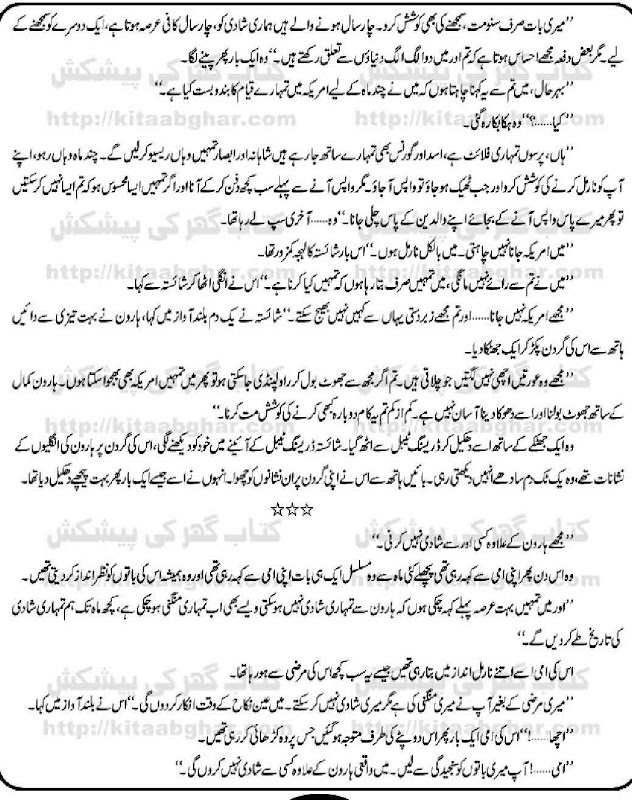 ’’میری بات صرف سنو مت، سمجھنے کی بھی کوشش کرو۔ چار سال ہونے والے ہیں ہماری شادی کو، چار سال کافی عرصہ ہوتا ہے، ایک دوسرے کو سمجھنے کے
لیے۔ مگر بعض دفعہ مجھے احساس ہوتا ہے کہ تم اور میں دو الگ الگ دنیاؤں سے تعلق رکھتے ہیں۔‘‘ وہ ایک بار پھر پینے لگا۔
’’بہرحال، میں تم سے یہ کہنا چاہتا ہوں کہ میں نے چند ماہ کے لیے امریکہ میں تمہارے قیام کا بندوبست کیا ہے۔‘‘
’’کیا......؟‘‘ وہ ہکا بکا رہ گئی۔
ہاں، پرسوں تمہاری فلائٹ ہے، اسد اور گورنس بھی تمہارے ساتھ جا رہے ہیں شاہانہ اور ابصار تمہیں وہاں ریسیو کر لیں گے۔ چند ماہ وہاں رہو، اپنے
آپ کو نارمل کرنے کی کوشش کرو اور جب ٹھیک ہو جاؤ تو واپس آ جاؤ۔ مگر واپس آنے سے پہلے سب کچھ دفن کر کے آنا اور اگر تمہیں ایسا محسوس ہو کہ تم ایسا نہیں کر سکتیں
تو پھر میرے پاس واپس آنے کے بجائے اپنے والدین کے پاس چلی جانا۔‘‘ وہ...... آخری سپ لے رہا تھا۔
’’میں امریکہ جانا نہیں چاہتی۔ میں بالکل نارمل ہوں۔‘‘ اس بار شائستہ کا لہجہ کمزور تھا۔
’’میں نے تم سے رائے نہیں مانگی، میں تمہیں صرف بتا رہا ہوں کہ تمہیں کیا کرنا ہے۔‘‘ اس نے انگلی اٹھا کر شائستہ سے کہا۔
’’مجھے امریکہ نہیں جانا...... اور تم مجھے زبردستی یہاں سے کہیں نہیں بھیج سکتے۔‘‘ شائستہ نے یک دم بلند آواز میں کہا، ہارون نے بہت تیزی سے دائیں
ہاتھ سے اس کی گردن پکڑ کر ایک جھٹکا دیا۔
’’مجھے وہ عورتیں اچھی نہیں لگتیں جو چلاتی ہیں۔ تم اگر مجھ سے جھوٹ بول کر راولپنڈی جا سکتی ہو تو پھر میں تمہیں امریکہ بھی بھجوا سکتا ہوں۔ ہارون کمال
کے ساتھ جھوٹ بولنا اور اسے دھوکا دینا آسان نہیں ہے۔ کم از کم تم یہ کام دوبارہ کبھی کرنے کی کوشش مت کرنا۔‘‘
وہ ایک جھٹکے کے ساتھ اسے دھکیل کر ڈریسنگ ٹیبل سے اٹھ گیا۔ شائستہ ڈریسنگ ٹیبل کے آئینے میں خود کو دیکھنے لگی، اس کی گردن پر ہارون کی انگلیوں کے
نشانات تھے، وہ یک ٹک دم سادھے انہیں دیکھتی رہی۔ بائیں ہاتھ سے اس نے اپنی گردن پر ان نشانوں کو چھوا۔ انہوں نے اسے جیسے ایک بار پھر بہت پیچھے دھکیل دیا تھا۔
☆☆☆
’’مجھے ہارون کے علاوہ کسی اور سے شادی نہیں کرنی۔‘‘
وہ اس دن پھر اپنی امی سے کہہ رہی تھی پچھلے کئی ماہ سے وہ مسلسل ایک ہی بات اپنی امی سے کہہ رہی تھی اور وہ ہمیشہ اس کی باتوں کو نظر انداز کر دیتی تھیں۔
’’اور میں تمہیں بہت عرصہ پہلے کہہ چکی ہوں کہ ہارون سے تمہاری شادی نہیں ہو سکتی ویسے بھی اب تمہاری منگنی ہو چکی ہے، کچھ ماہ تک ہم تمہاری شادی
کی تاریخ طے کر دیں گے۔‘‘
اس کی امی اسے اتنے نارمل انداز میں بتا رہی تھیں جیسے یہ سب کچھ اس کی مرضی سے ہو رہا تھا۔
’’میری مرضی کے بغیر آپ نے میری منگنی کی ہے مگر میری شادی نہیں کر سکتے۔ میں عین نکاح کے وقت انکار کر دوں گی۔‘‘ اس نے بلند آواز میں کہا۔
’’اچھا......!‘‘ اس کی امی ایک بار پھر اس دوپٹے کی طرف متوجہ ہو گئیں جس پر وہ کڑھائی کر رہی تھیں۔
’’امی......! آپ میری باتوں کو سنجیدگی سے لیں۔ میں واقعی ہارون کے علاوہ کسی سے شادی نہیں کروں گی۔‘‘
کتاب گھر کی پیشکش
http://kitaabghar.com